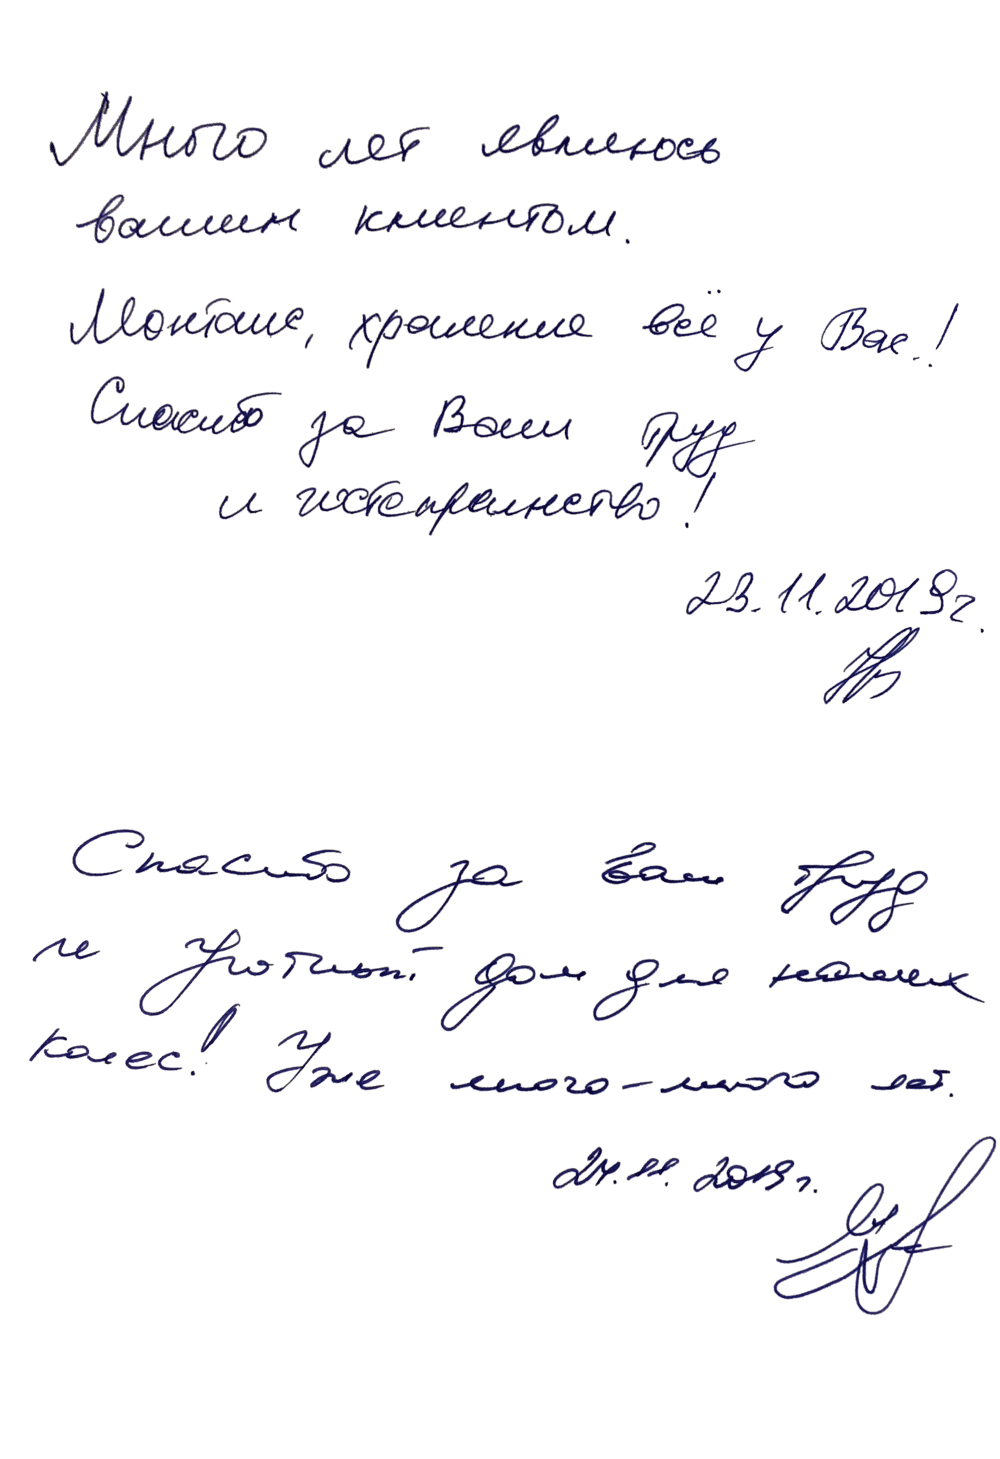 Много лет являюсь
вашим клиентом.
Монтаж, хранение всё у Вас!
Спасибо за Ваш труд
и гостеприимство!
23.11.2019г.
Спасибо за Ваш труд
и Уютный дом для наших
колес! Уже много-много лет.
24.11.2019г.